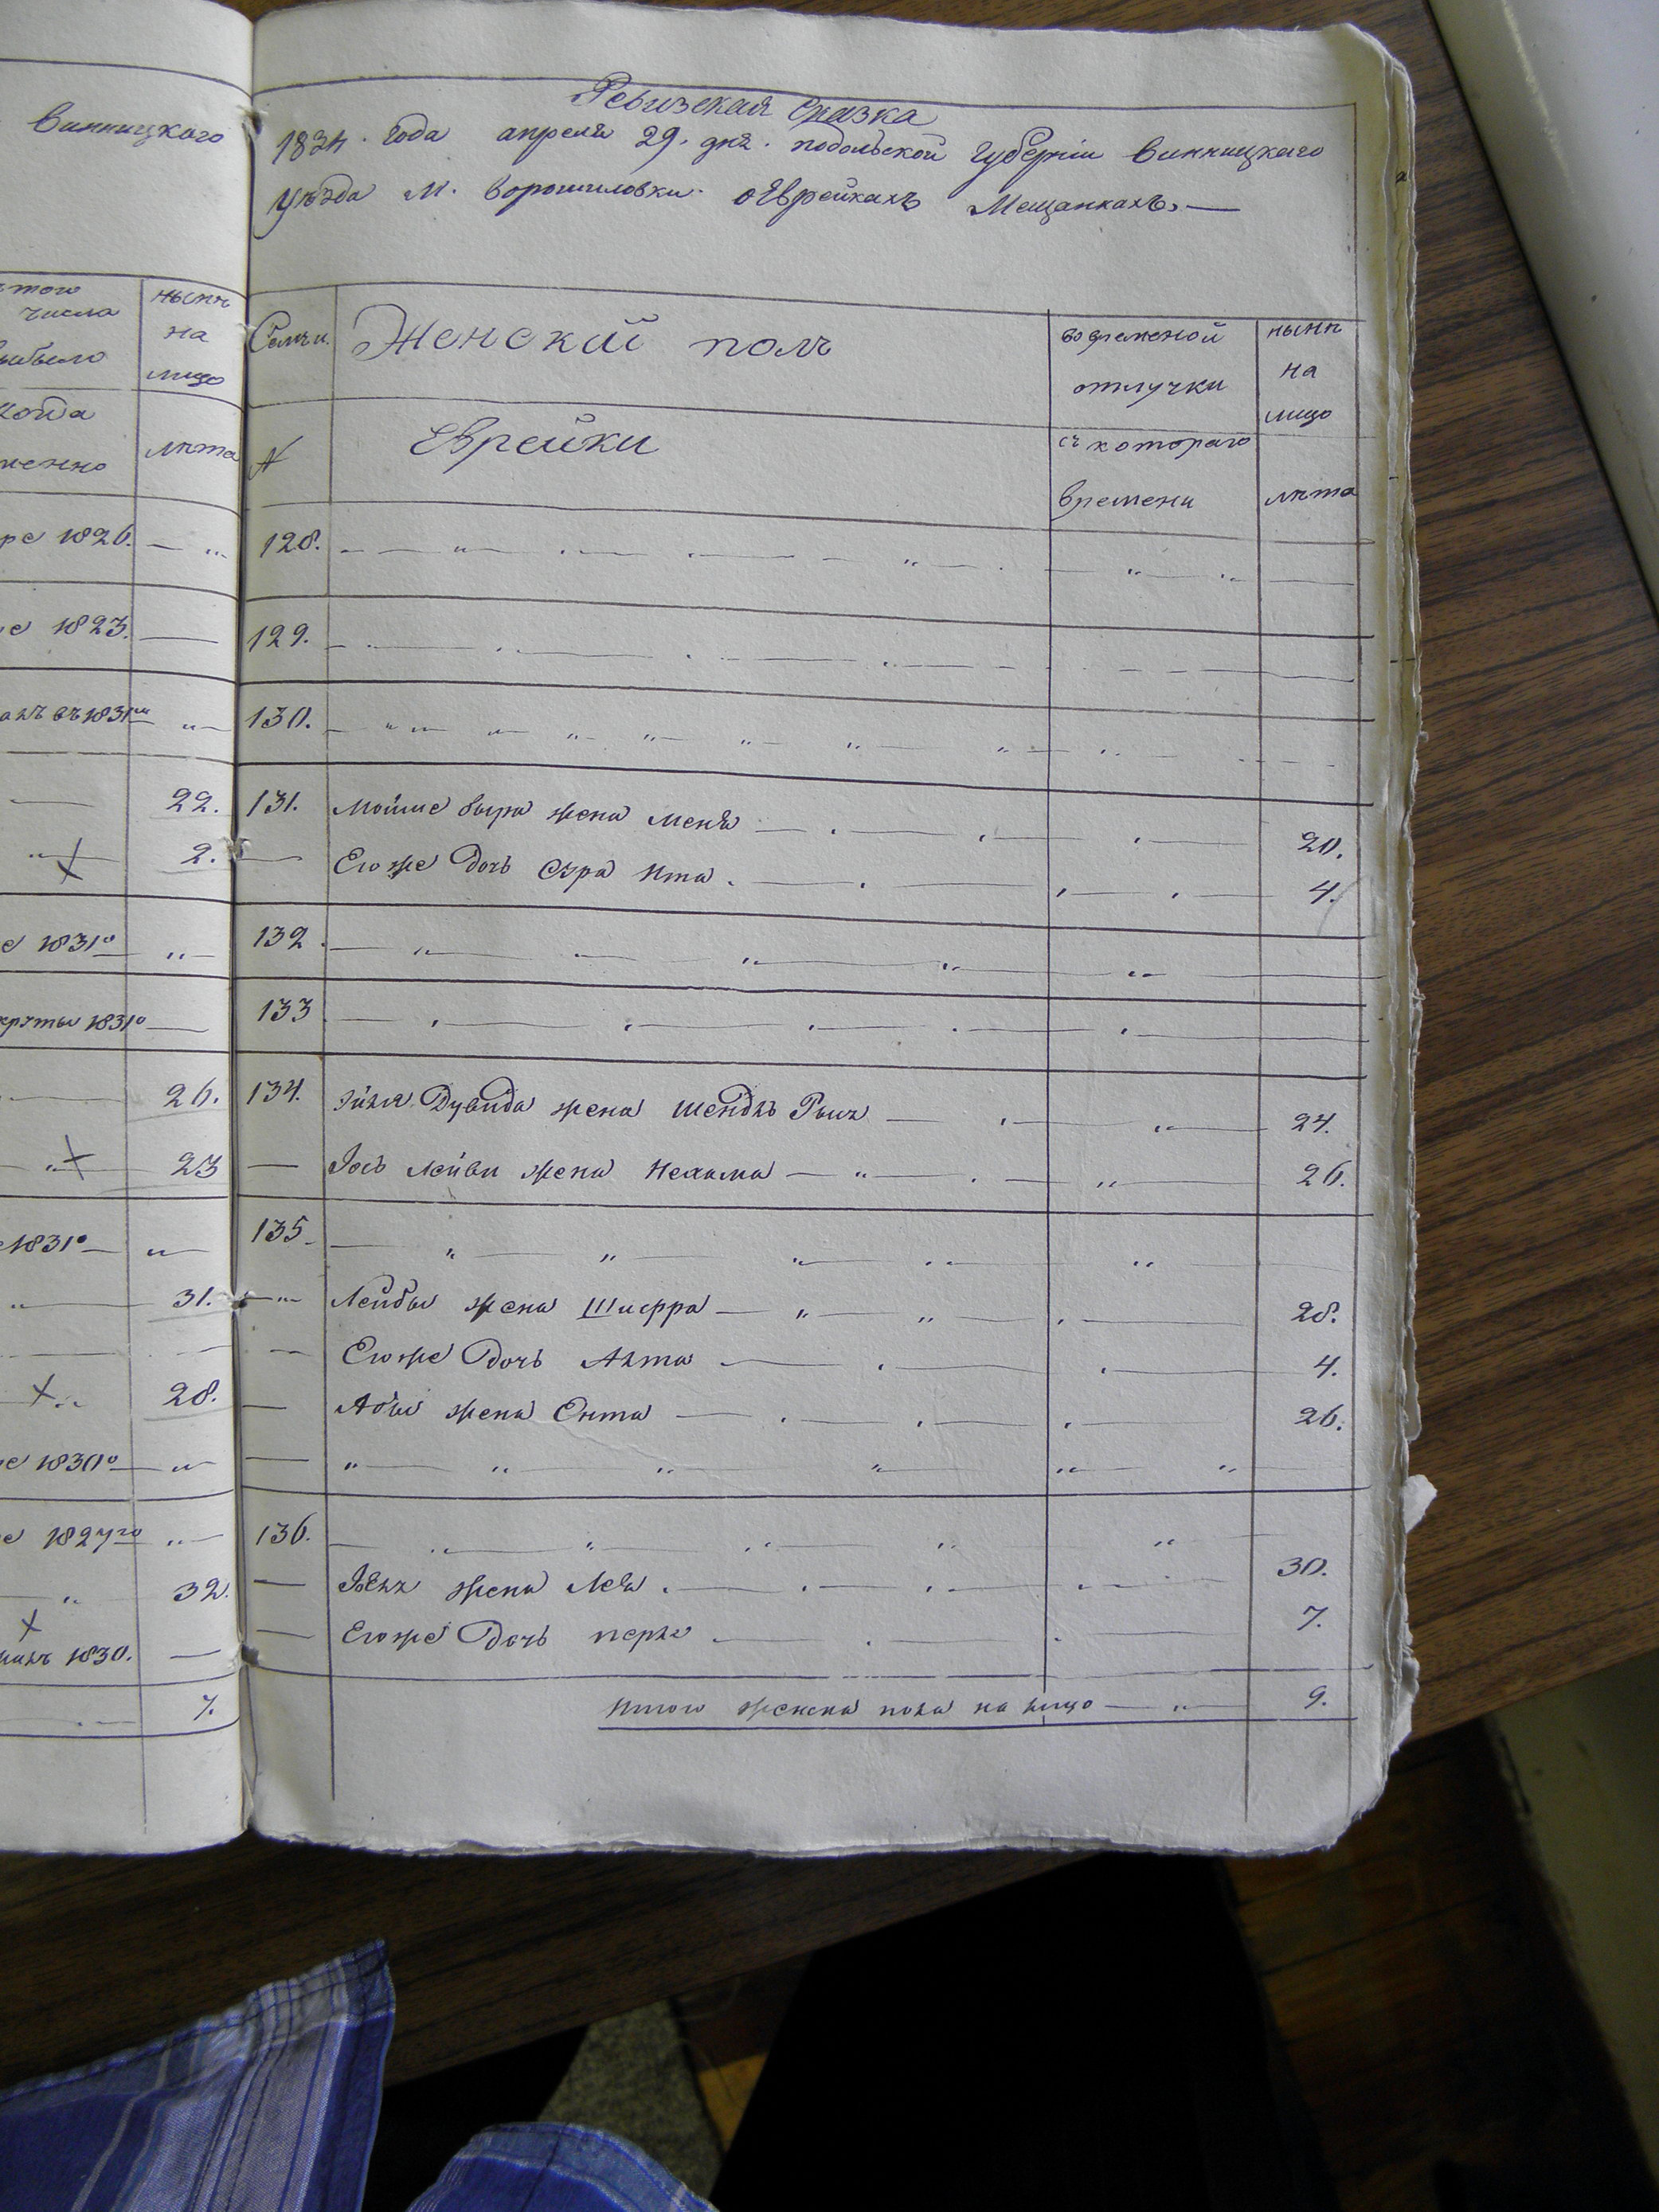 Винницкого
того
числа
выбыло
когда
именно
нынѣ
на
лицо
лѣта
1826. — „
1823. —
въ 1831го „ —
— 22.
„ — 2.
1831о — „ —
1831о —
— 26.
— „ — 23
1831о — „ —
„ — 31.
— —
„ 28.
1830о — „ —
1827го „ —
— „ 32.
1830. —
7.
Ревизская сказка
1834. года апреля 29. дня. подольской губерніи винницкаго
уѣзда м. ворошиловки. о Еврейкахъ Мещанкахъ. —
Семьи.
Женский полъ
во временой
отлучки
нынѣ
на
лицо
№
Еврейки
съ котораго
времени
лѣта
128.
129.
130.
131. Мошие бера жена меня — 20.
— Егоже Дочь Сура Ита. — 4.
132.
133
134. Дувида жена Шендль — 24.
— Іось Лейви жена Нехама — 26.
135.
— Лейбы жена Шифра — 28.
— Егоже Дочь — 4.
— Абы жена Ента — 26.
— „ „ „ „
136.
— жена Лея. — 30.
— Егоже Дочь перля — 7.
Итого женска пола на лицо — „ — 9.